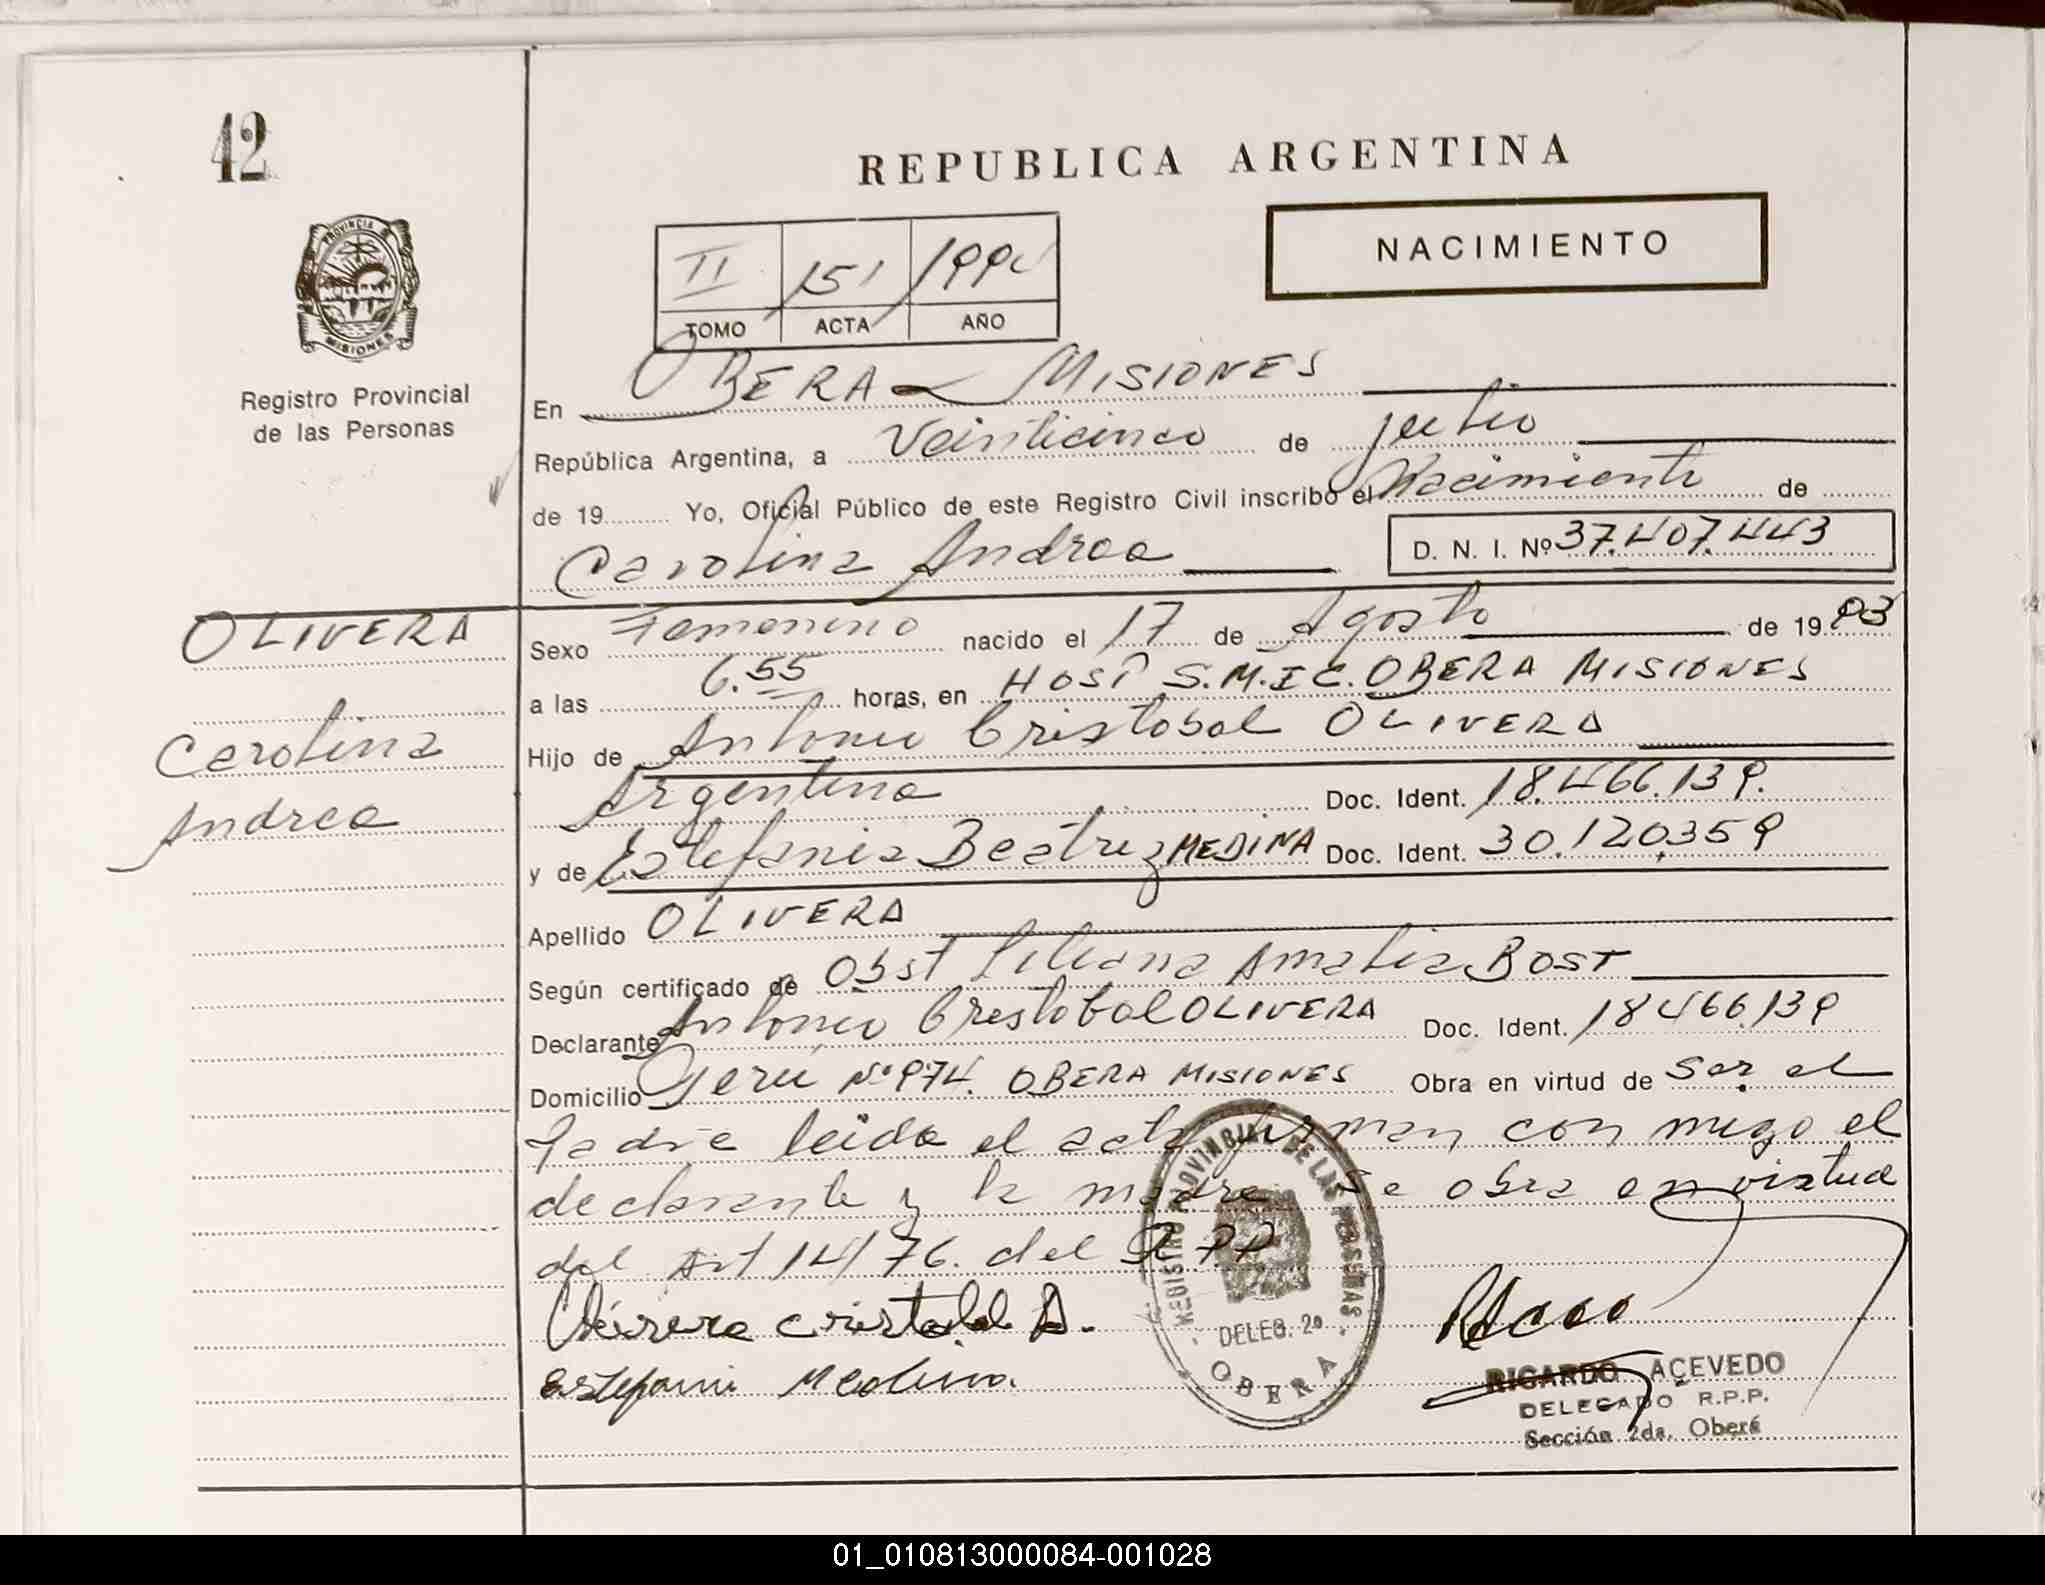 42
REPUBLICA ARGENTINA
NACIMIENTO
II 151 199
TOMO ACTA AÑO
PROVINCIA DE
MISIONES
Registro Provincial
de las Personas
En OBERA - MISIONES
República Argentina, a Veinticinco de julio
de 19 Yo, Oficial Público de este Registro Civil inscribo el Nacimiento de
Carolina Andrea D. N. I. Nº 37.407.443
OLIVERA
Carolina
Andrea
Sexo Femenino nacido el 17 de Agosto de 19 93
a las 6.55 horas, en HOSP S.M.I C. OBERA MISIONES
Hijo de Antonio Cristobal OLIVERA
Argentina Doc. Ident. 18.466.139.
y de Estefania Beatriz MEDINA Doc. Ident. 30.120.359
Apellido OLIVERA
Según certificado de Obst Liliana Amalia BOST
Declarante Antonio Cristobal OLIVERA Doc. Ident. 18466.139
Domicilio Perú Nº 974. OBERA MISIONES Obra en virtud de Ser el
Padre leida el acta firman con migo el
declarante y la madre Se obra en virtud
del Art 14/76. del R.P.P
cristobal A.
Estefani Medina.
REGISTRO PROVINCIAL DE LAS PERSONAS
DELEG. 2a
OBERA
RICARDO ACEVEDO
DELEGADO R.P.P.
Sección 2da. Oberá
01_010813000084-001028